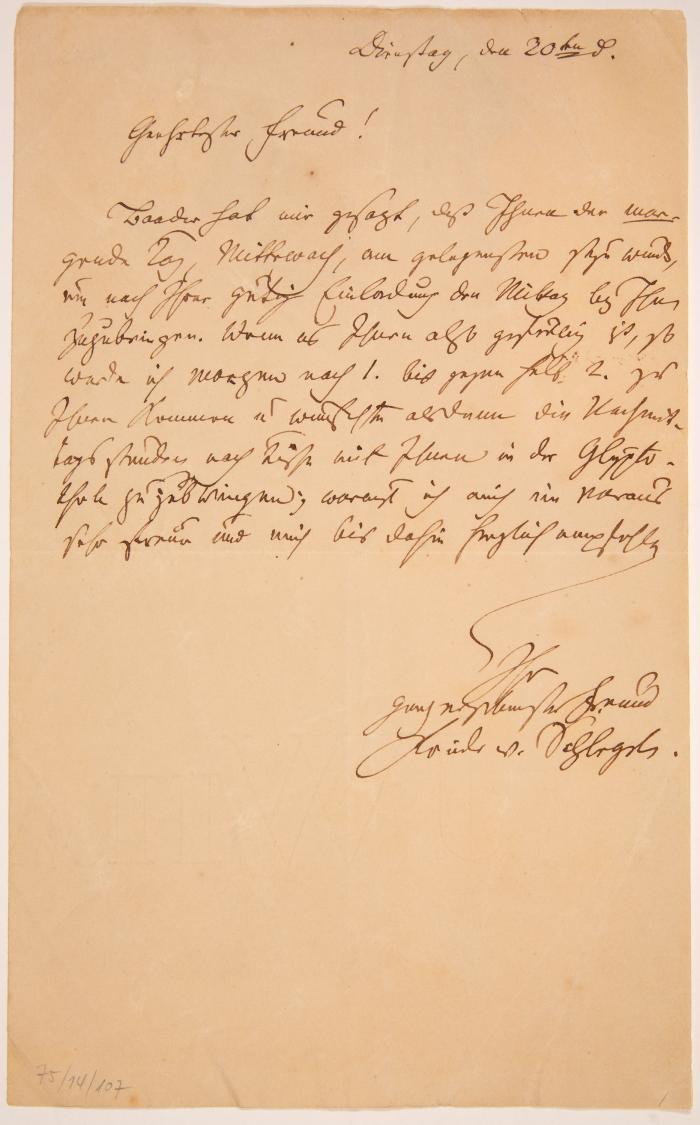 Dienstag, den 20ten d.
Geehrtester Freund!
Baader hat mir gesagt, daß Ihnen der mor-
gende Tag, Mittewoch, am gelegensten seyn würde,
um nach Ihrer gütigen Einladung den Mittag bey Ihnen
zuzubringen. Wenn es Ihnen also gefällig ist, so
werde ich morgen nach 1. bis gegen halb 2. zu
Ihnen kommen u wünschte alsdann die Nachmit-
tagsstunden nach Tische mit Ihnen in der Glypto-
thek zuzubringen; worauf ich mich im voraus
sehr freue und mich bis dahin herzlich empfehle
Ihr
ganz ergebenster Freund
Friedr v. Schlegel.
75/14/107